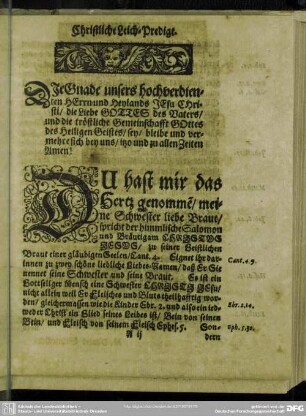 Christliche Leich-Predigt.
DJe Gnade unsers hochverdien-
ten HErrn und Heylands JEsu Chri-
sti/ die Liebe GOTTES des Vaters/
und die tröstliche Gemeinschafft GOttes
des Heiligen Geistes/ sey/ bleibe und ver-
mehre sich bey uns/ itzo und zu allen Zeiten
Amen!
DU hast mir das
Hertz genommē/ mei-
ne Schwester liebe Braut/
spricht der himmlische Salomon
und Bräutigam CHRISTUS
JESUS/ zu seiner Geistlichen
Braut einer gläubigen Seelen/ Cant. 4. Eignet ihr dar-
innen zu zwo schöne liebliche Liebes-Namen/ daß Er Sie
nennet seine Schwester und seine Braut. Es ist ein
Gottseliger Mensch eine Schwester CHRISTJ JESU/
nicht allein weil Er Fleisches und Blutes theilhafftig wor-
den/ gleichermassen wie die Kinder Ebr. 2. und also ein ied-
weder Christ ein Glied seines Leibes ist/ Bein von seinen
Bein/ und Fleisch von seinem Fleisch Ephes. 5. Son-
A ij dern
Cant. 4. 9.
Ebr. 2. 14.
Eph. 5. 30.